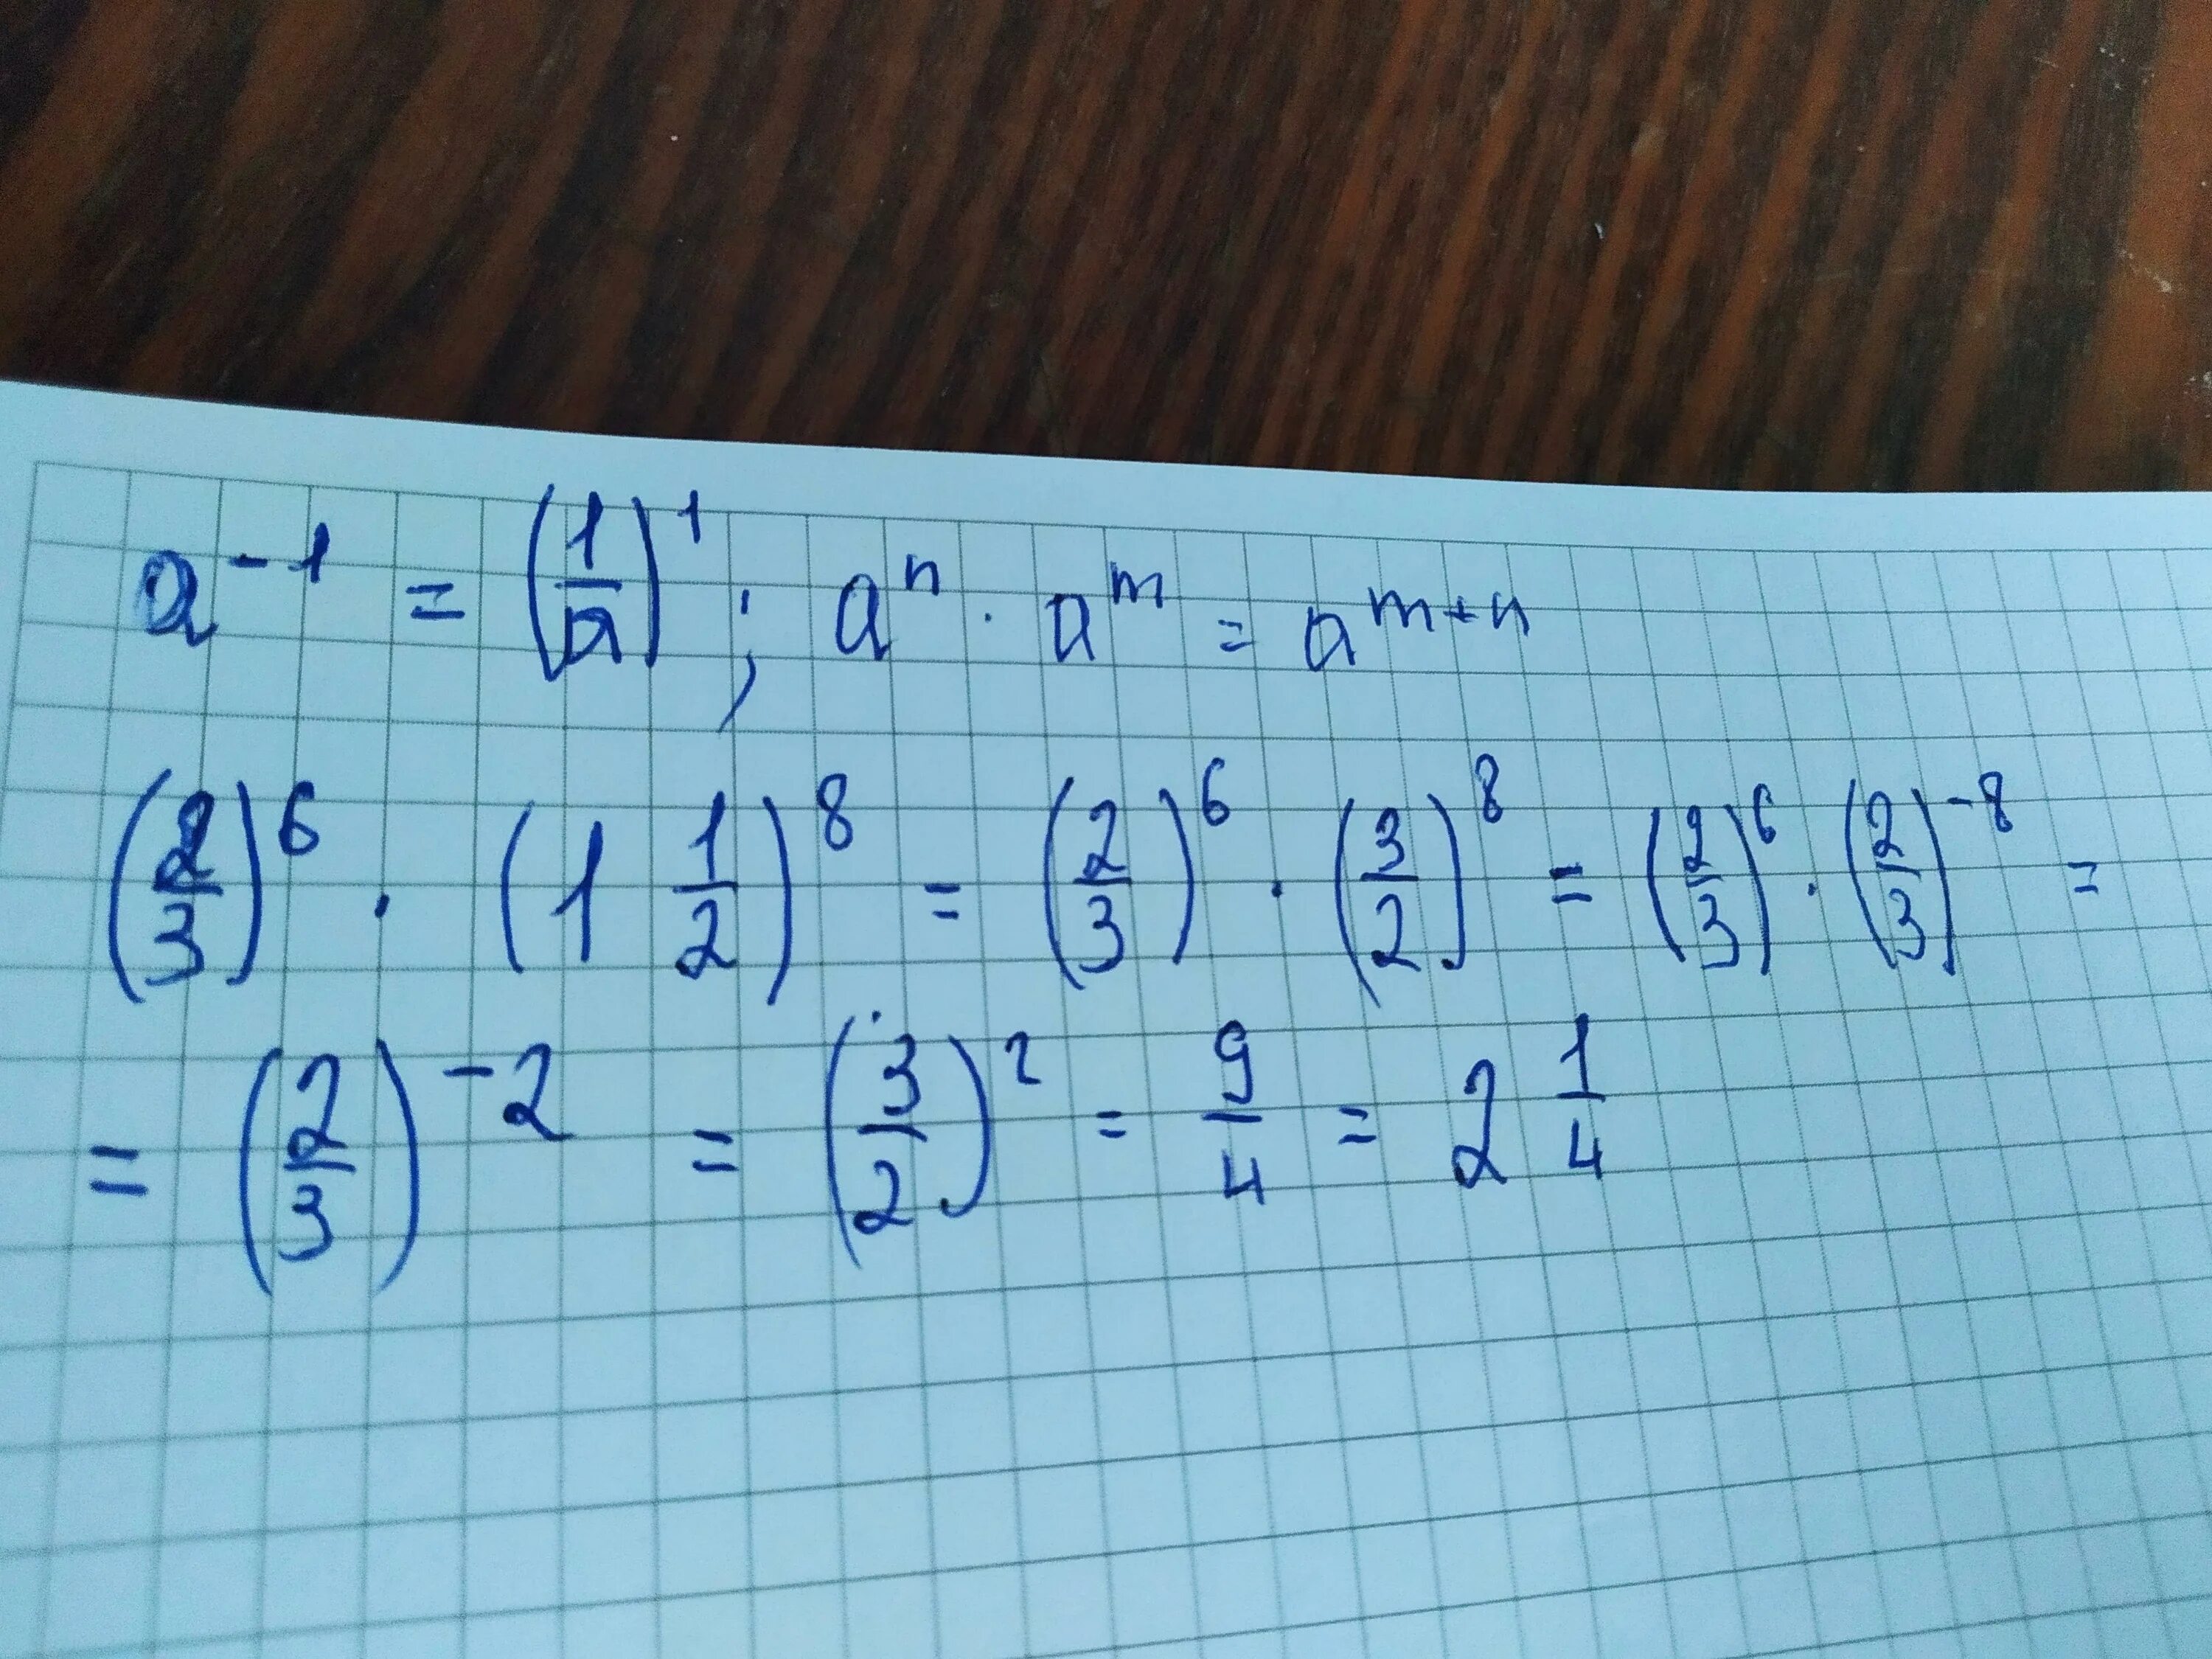 a⁻¹ = (1/a)¹ ; aⁿ · aᵐ = aᵐ⁺ⁿ
(2/3)⁶ · (1 1/2)⁸ = (2/3)⁶ · (3/2)⁸ = (2/3)⁶ · (2/3)⁻⁸ =
= (2/3)⁻² = (3/2)² = 9/4 = 2 1/4